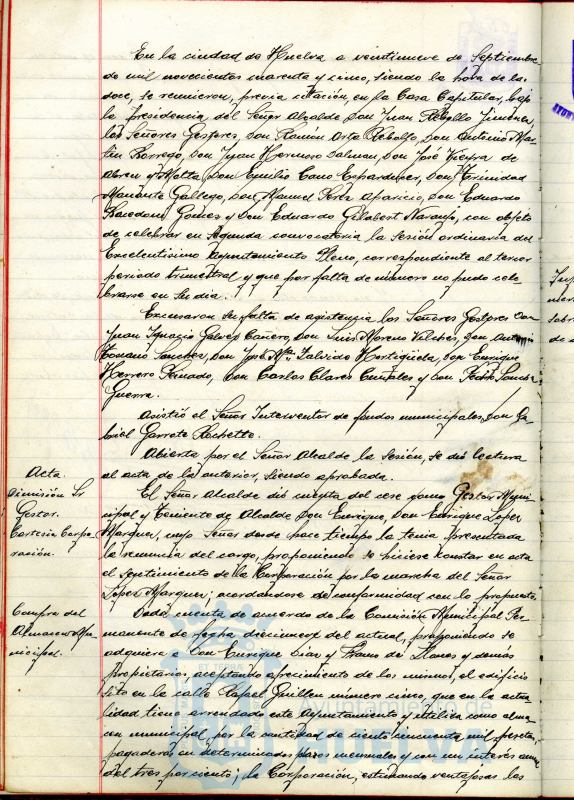 En la ciudad de Huelva a veintinueve de Septiembre
de mil novecientos cuarenta y cinco, siendo la hora de las
doce, se reunieron, previa citación, en la Casa Capitular, bajo
la presidencia del Señor Alcalde Don Juan Rebollo Jiménez,
los Señores Gestores, Don Ramón Arta Rebollo, Don Antonio Mar-
tín Borrego, Don Juan Hermoso Salman, Don José Vieyra de
Abreu y Motta, Don Emilio Cano Don Trinidad
Gallego, Don Manuel Aparicio, Don Eduardo
Gomes y Don Eduardo Gilabert Naranjo, con objeto
de celebrar en segunda convocatoria la sesión ordinaria del
Excelentísimo Ayuntamiento Pleno, correspondiente al tercer
periodo trimestral y que por falta de número no pudo cele-
brarse en su día.
Excusaron su falta de asistencia los Señores Gestores Don
Juan Ignacio Galvez Cañero, Don Luis Moreno Vilches, Don Antonio
Toscano Sanchez, Don José Mª Hortigüela, Don Enrique
Herrero Don Carlos Clares y Don Pedro Sanchez
Guerra.
Asistió el Señor Interventor de fondos municipales, Don Ga-
briel Garrote
Abierta por el Señor Alcalde la sesión, se dió lectura
al acta de la anterior, siendo aprobada.
Acta.
El Señor Alcalde dió cuenta del cese como Gestor Muni-
cipal y Teniente de Alcalde Don Enrique, Don Enrique Lopez
Marquez, cuyo Señor desde hace tiempo la tenia presentada
la renuncia del cargo, proponiendo se hiciese constar en acta
el sentimiento de la Corporación por la marcha del Señor
Lopez Marquez; acordandose de conformidad con lo propuesto.
Dimisión Sr
Gestor.
Cortesia Corpo-
ración.
Dada cuenta de acuerdo de la Comisión Municipal Per-
manente de fecha diecinueve del actual, proponiendo se
adquiera a Don Enrique Diaz y Franco de Llanos y demás
propietarios, aceptando ofrecimiento de los mismos, el edificio
sito en la calle Rafael Guillen número cinco, que en la actua-
lidad tiene arrendado este Ayuntamiento y utiliza como alma-
cen municipal, por la cantidad de ciento cincuenta mil pesetas,
pagaderas en determinados plazos mensuales y con un interés anual
del tres por ciento; la Corporación, estimando ventajosas las
Compra del
Almacen Mu-
nicipal.
Ayuntamiento de
Huelva